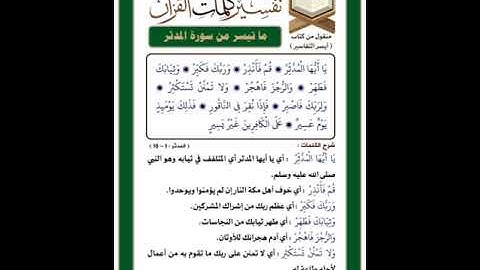 تفسير كلمات القرآن
منقول من كتاب
( أيسر التفاسير )
ما تيسر من سورة المدثر
يَا أَيُّهَا الْمُدَّثِّرُ * قُمْ فَأَنْذِرْ * وَرَبَّكَ فَكَبِّرْ * وَثِيَابَكَ
فَطَهِّرْ * وَالرُّجْزَ فَاهْجُرْ * وَلَا تَمْنُنْ تَسْتَكْثِرُ *
وَلِرَبِّكَ فَاصْبِرْ * فَإِذَا نُقِرَ فِي النَّاقُورِ * فَذَلِكَ يَوْمَئِذٍ
يَوْمٌ عَسِيرٌ * عَلَى الْكَافِرِينَ غَيْرُ يَسِيرٍ
شرح الكلمات : (المدثر: 1 - 10)
يَا أَيُّهَا الْمُدَّثِّرُ : أي يا أيها المدثر أي المتلفف في ثيابه وهو النبي
صلى الله عليه وسلم.
قُمْ فَأَنْذِرْ : أي خوف أهل مكة النار إن لم يؤمنوا ويوحدوا.
وَرَبَّكَ فَكَبِّرْ : أي عظم ربك من إشراك المشركين.
وَثِيَابَكَ فَطَهِّرْ : أي طهر ثيابك من النجاسات.
وَالرُّجْزَ فَاهْجُرْ : أي أدم هجرانك للأوثان.
وَلَا تَمْنُنْ تَسْتَكْثِرُ : أي لا تمنن على ربك ما تقوم به من أعمال